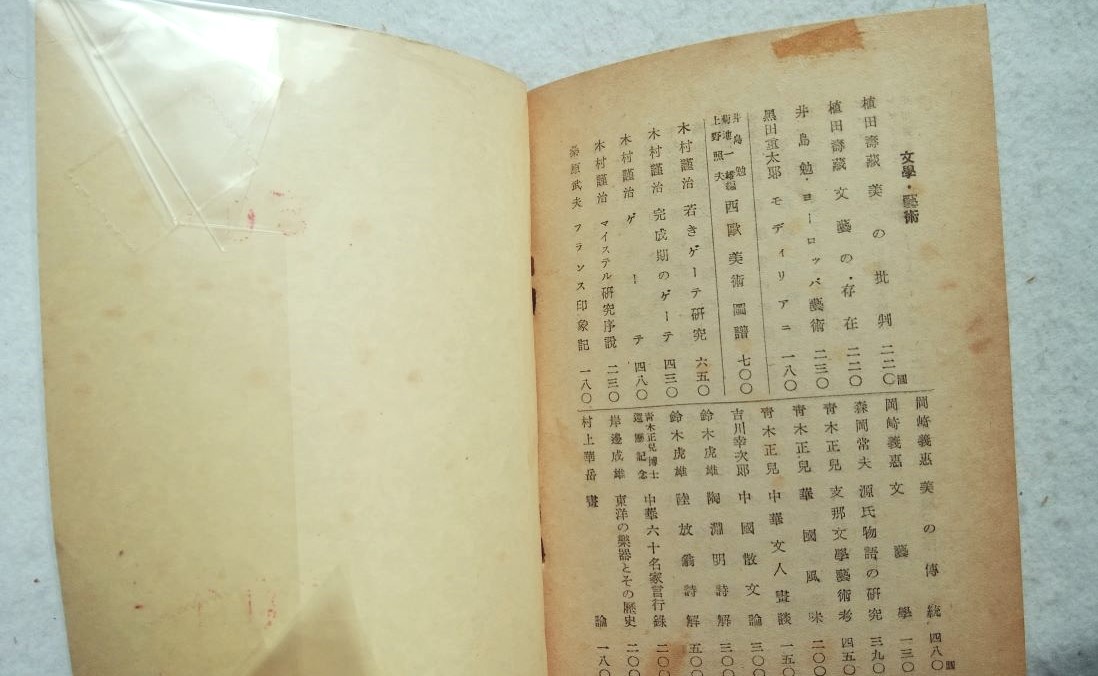 文學・藝術
植田壽藏 美の批判 二二〇圓
植田壽藏 文藝の存在 二二〇
井島勉 ヨーロッパ藝術 二三〇
黑田重太郎 モディリアニ 一八〇
井島勉 菊池一雄 上野照夫 編 西歐美術圖譜 七〇〇
木村謹治 若きゲーテ硏究 六五〇
木村謹治 完成期のゲーテ 四三〇
木村謹治 ゲーテ 四八〇
木村謹治 マイステル硏究序說 二三〇
桑原武夫 フランス印象記 一八〇
岡崎義惠 美の傳統 四八〇圓
岡崎義惠 文藝學 一三〇
森岡常夫 源氏物語の硏究 三九〇
靑木正兒 支那文學藝術考 四五〇
靑木正兒 華國風味 二〇〇
靑木正兒 中華文人畫談 一五〇
吉川幸次郎 中國散文論 三〇〇
鈴木虎雄 陶淵明詩解 三〇〇
鈴木虎雄 陸放翁詩解 五〇〇
靑木正兒博士還曆記念 中華六十名家言行錄 二〇〇
岸邊成雄 東洋の樂器とその歷史 二〇〇
村上華岳 畫論 一八〇